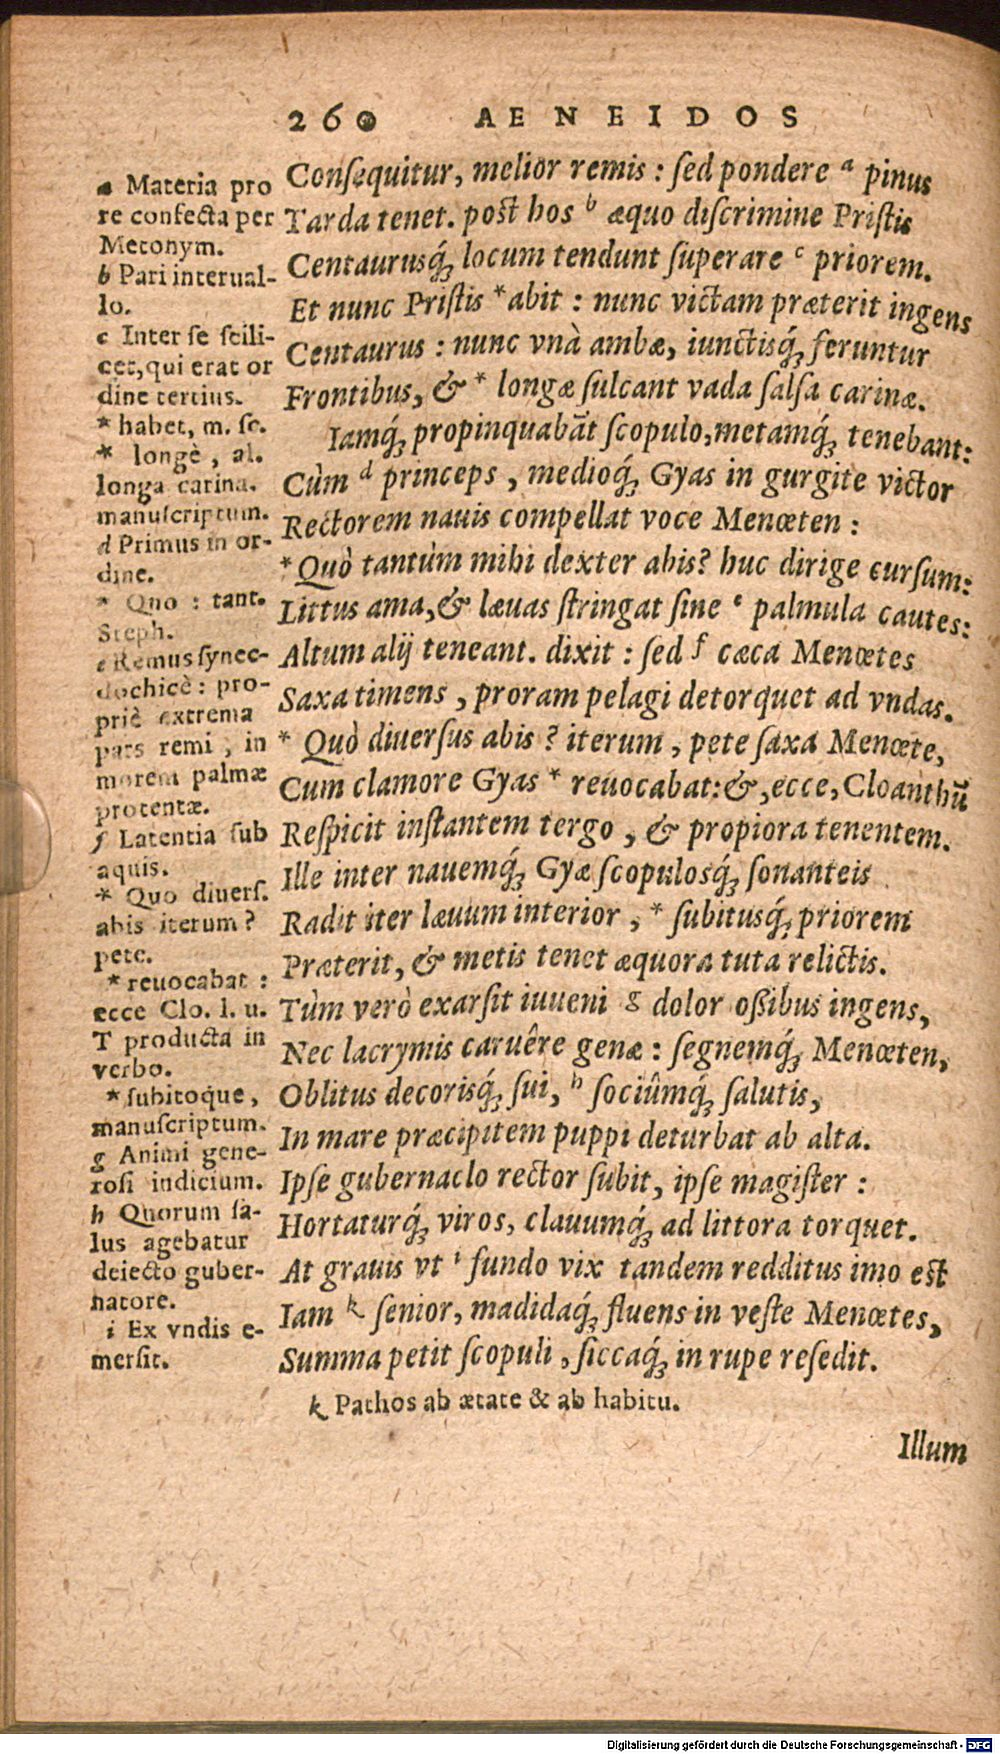 260 AENEIDOS
Consequitur, melior remis: sed pondere a pinus
Tarda tenet. post hos b æquo discrimine Pristis
Centaurusq́; locum tendunt superare c priorem.
Et nunc Pristis * abit: nunc victam præterit ingens
Centaurus: nunc vnà ambæ, iunctisq́; feruntur
Frontibus, & * longæ sulcant vada salsa carinæ.
Iamq́; propinquabāt scopulo, metamq́; tenebant:
Cùm d princeps, medioq́; Gyas in gurgite victor
Rectorem nauis compellat voce Menœten:
* Quò tantùm mihi dexter abis? huc dirige cursum:
Littus ama, & læuas stringat sine e palmula cautes:
Altum alij teneant. dixit: sed f cæca Menœtes
Saxa timens, proram pelagi detorquet ad vndas.
* Quò diuersus abis? iterum, pete saxa Menœte,
Cum clamore Gyas * reuocabat: &, ecce, Cloanthū
Respicit instantem tergo, & propiora tenentem.
Ille inter nauemq́; Gyæ scopulosq́; sonanteis
Radit iter læuum interior, * subitusq́; priorem
Præterit, & metis tenet æquora tuta relictis.
Tùm verò exarsit iuueni g dolor ossibus ingens,
Nec lacrymis caruêre genæ: segnemq́; Menœten,
Oblitus decorisq́; sui, h sociûmq́; salutis,
In mare præcipitem puppi deturbat ab alta.
Ipse gubernaclo rector subit, ipse magister:
Hortaturq́; viros, clauumq́; ad littora torquet.
At grauis vt i fundo vix tandem redditus imo est
Iam k senior, madidaq́; fluens in veste Menœtes,
Summa petit scopuli, siccaq́; in rupe resedit.
a Materia pro
re confecta per
Metonym.
b Pari interual-
lo.
c Inter se scili-
cet, qui erat or
dine tertius.
* habet, m. sc.
* longè, al.
longa carina.
manuscriptum.
d Primus in or-
dine.
* Quo: tant.
Steph.
e Remus synec-
dochicè: pro-
priè extrema
pars remi, in
morem palmæ
protentæ.
f Latentia sub
aquis.
* Quo diuers.
abis iterum?
pete.
* reuocabat:
ecce Clo. l. u.
T producta in
verbo.
* subitoque,
manuscriptum.
g Animi gene-
rosi indicium.
h Quorum sa-
lus agebatur
deiecto guber-
natore.
i Ex vndis e-
mersit.
k Pathos ab ætate & ab habitu.
Illum
Digitalisierung gefördert durch die Deutsche Forschungsgemeinschaft - DFG